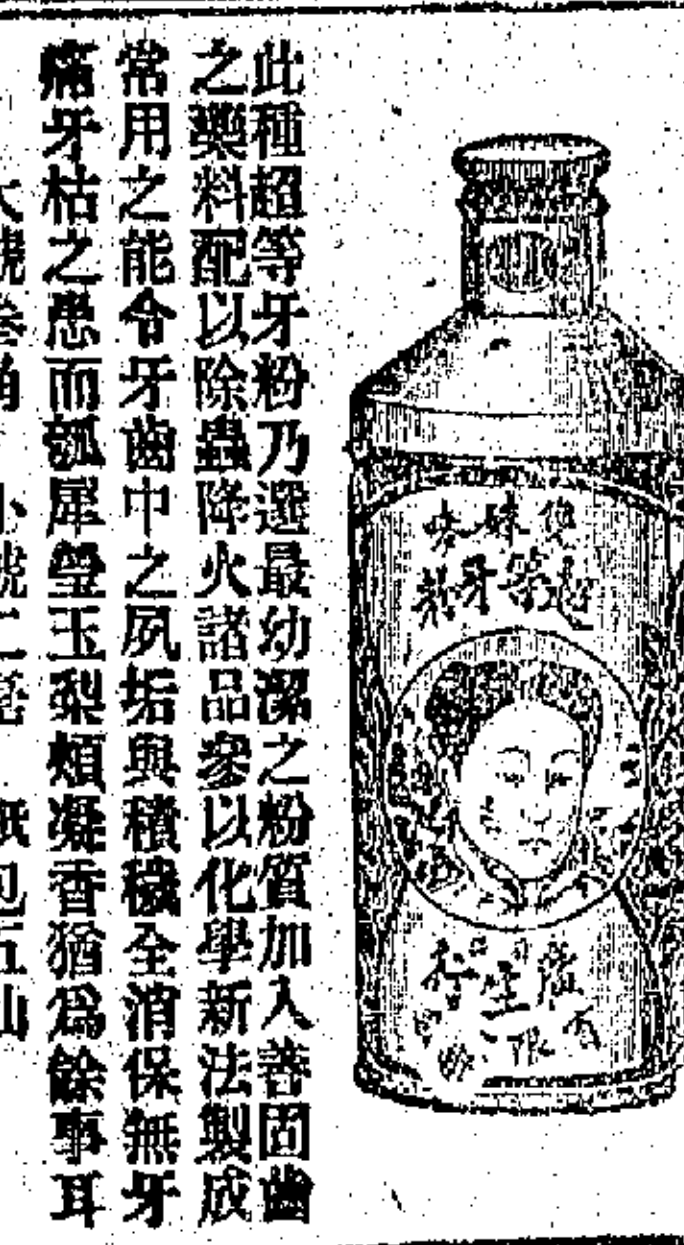 雙妹嘜
超等牙粉
廣生行
有限公司
此種超等牙粉乃選最幼潔之粉質加入善固齒
之藥料配以除蟲降火諸品參以化學新法製成
常用之能令牙齒中之夙垢與積穢全消保無牙
痛牙枯之患而瓠犀瑩玉梨頰凝香猶爲餘事耳
大號叁角 小號二毫 紙包五仙